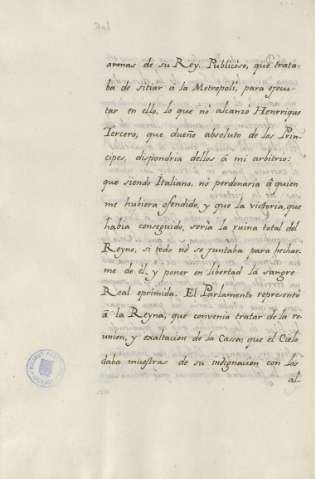 armas de su Rey. Publicòse, que trata-
ba de sitiar à la Metropoli, para execu-
tar en ello, lo que no alcanzó Henrrique
Tercero, que dueño absoluto de los Prin-
cipes, dispondria dellos á mi arbitrio:
que siendo Italiano, no perdonaria á quien
me hubiera ofendido, y que la victoria, que
habia conseguido, seria la ruina total del
Reyno, si todo no se juntaba para hechar-
me de èl, y poner en libertad la sangre
Real oprimida. El Parlamento representó
á la Reyna, que convenia tratar de la re-
union, y exaltacion de la Casa; que el Cielo
daba muestras de su indignacion con los
al